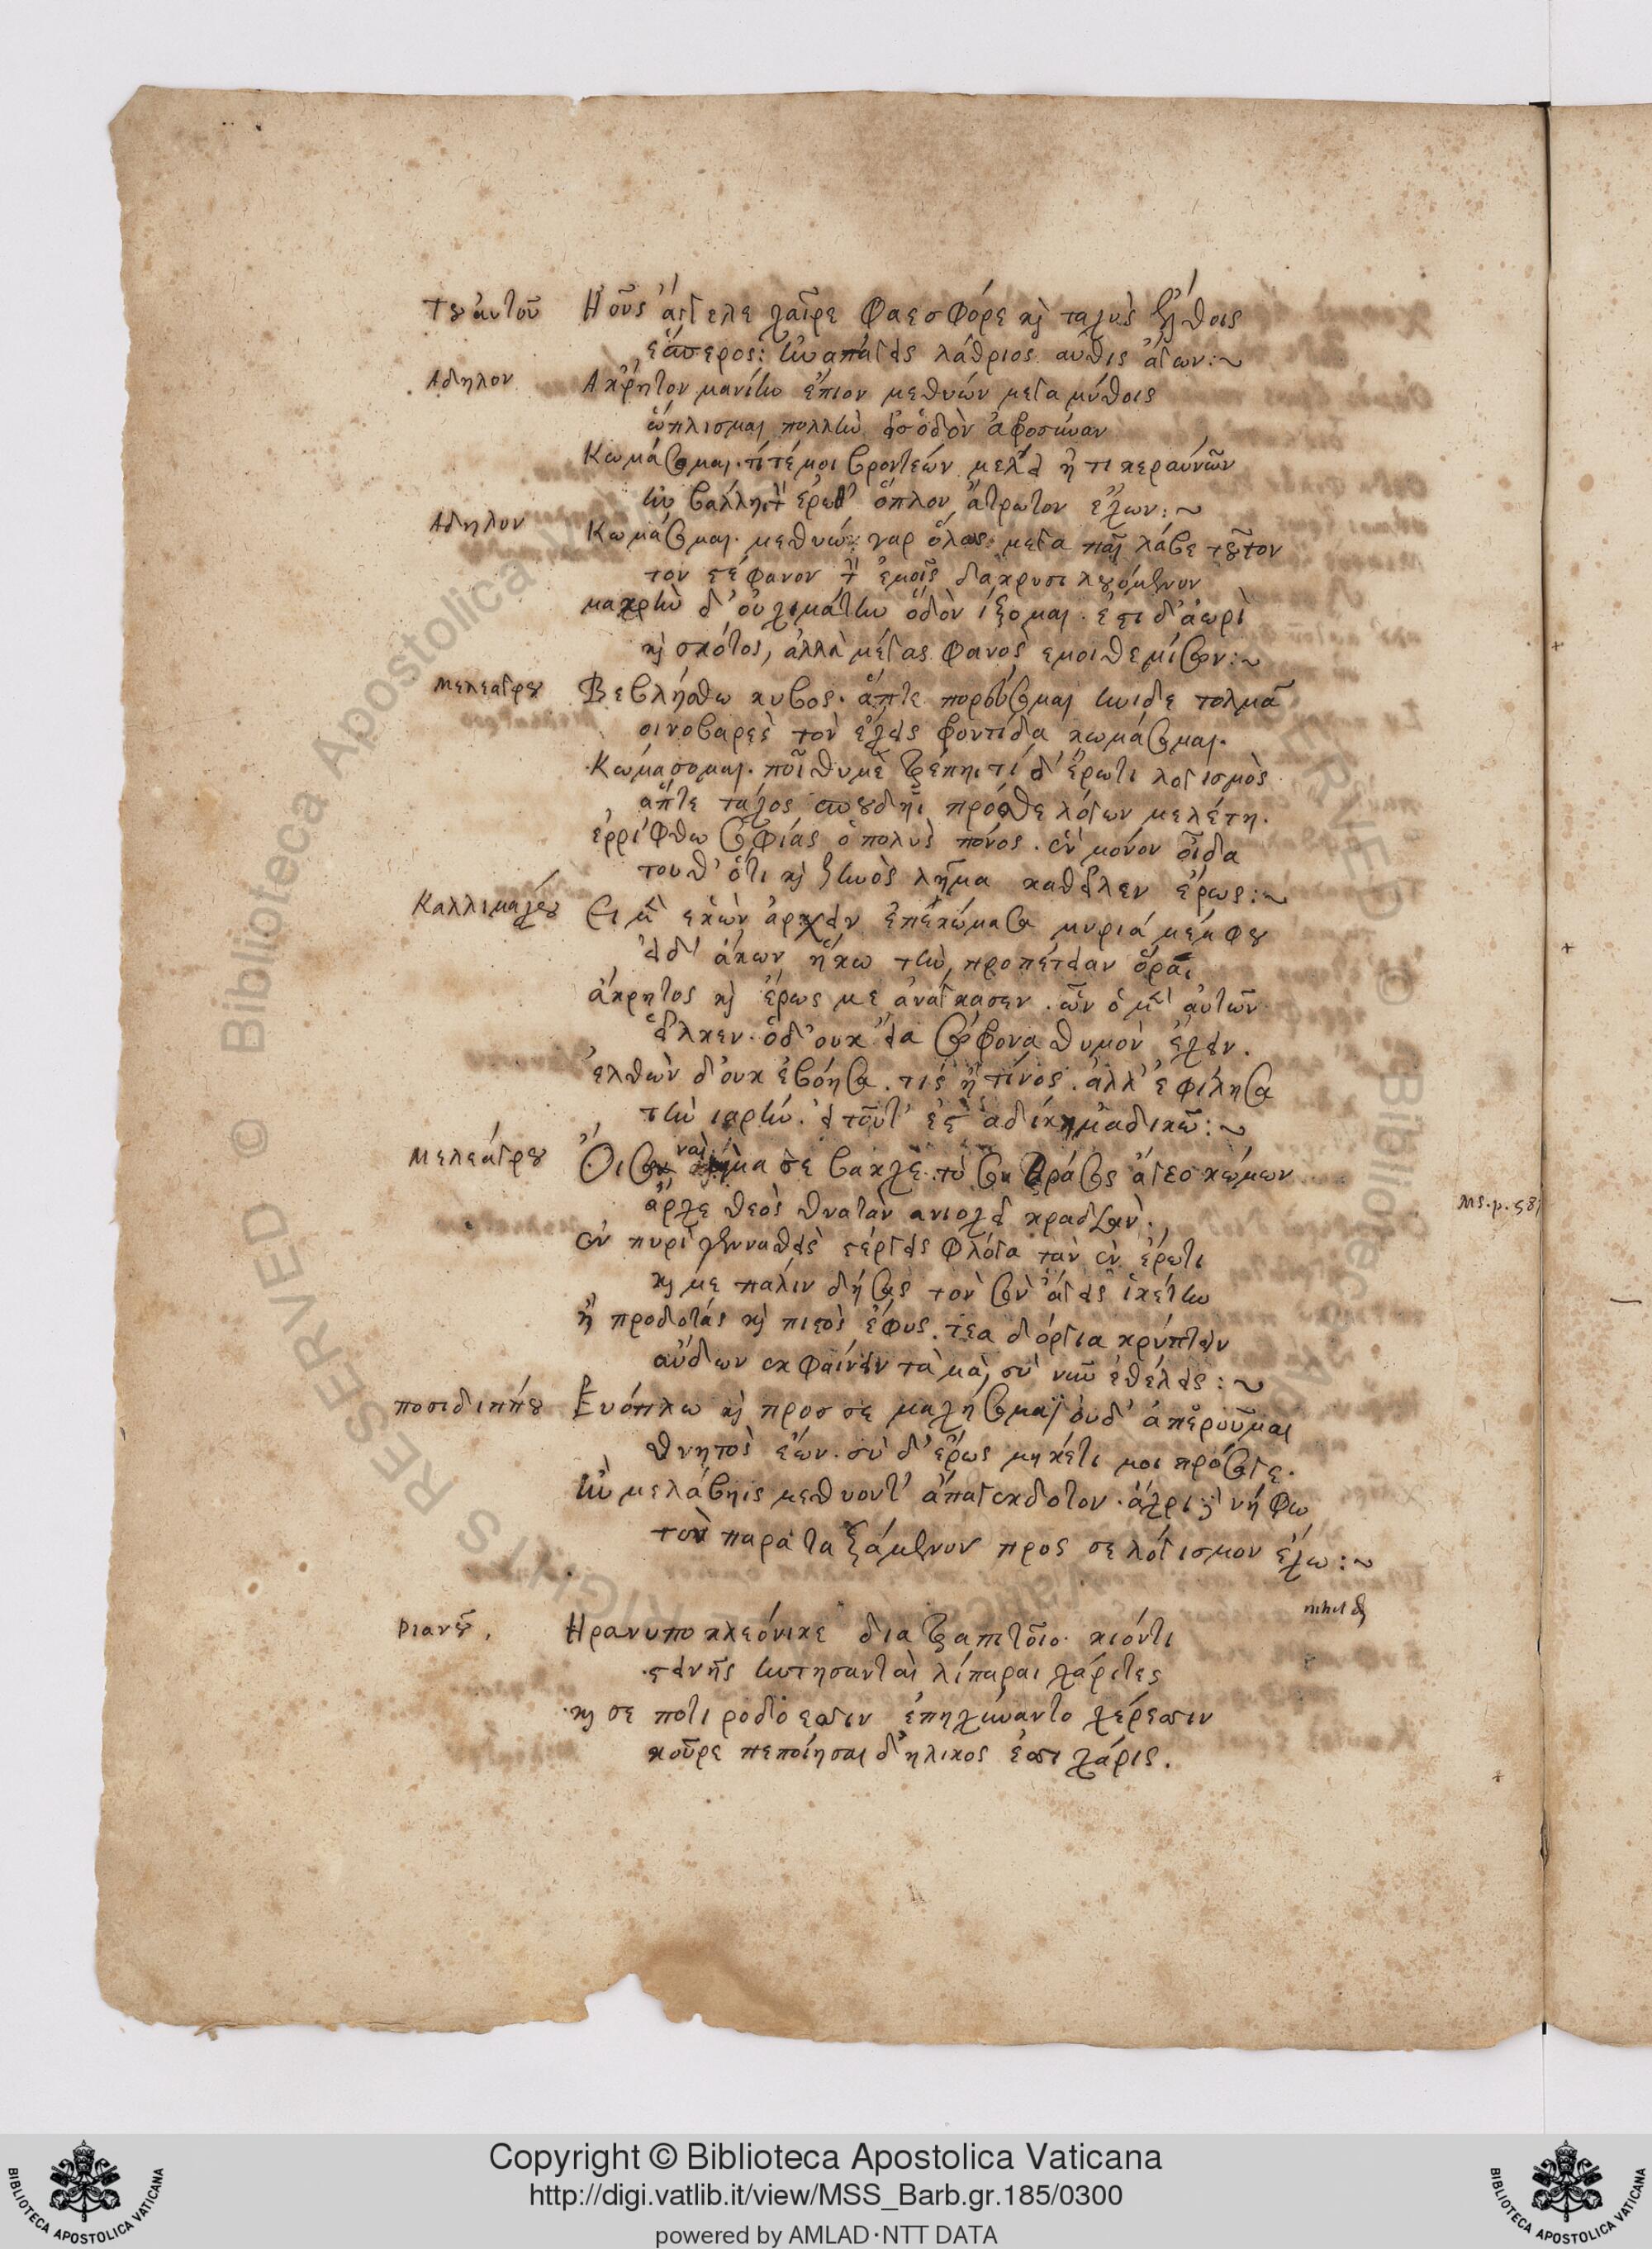 Τοῦ αὐτοῦ Ηοῦς ἄγγελε χαῖρε Φαεσφόρε κ̀ ταχὺς ἔλθοις
ἕσπερος: ἣν ἀπάγεις λάθριος αὖθις ἄγων:~
Αδηλον Ακρητον μανίην ἔπιον μεθύων μέγα μύθοις
ὥπλισμαι πολλὴν εἰς ὁδὸν ἀφροσύναν
Κωμάσομαι. τί τέ μοι βροντέων μέλει ἢ τί κεραυνῶν
ἢν βάλληι τὸν ἔρωθ' ὅπλον ἄτρωτον ἔχων:~
Αδηλον Κωμάσομαι. μεθύω γαρ ὅλως μέγα παῖ λάβε τοῦτον
τον στέφανον τὸν ἐμοῖς δάκρυσι λουόμενον
μακρὴν δ' οὐχι μάτην ὁδὸν ἵξομαι. ἔστι δ' ἀωρὶ
κ̀ σκότος, ἀλλὰ μέγας φανὸς ἐμοὶ θεμίσων:~
Μελεάγρου Βεβλήσθω κυβος. ἅπτε πορεύσομαι ἠνιδε τολμᾶ
οινοβαρὲς τὸν ἔχεις φροντίδα κωμάσομαι.
Κωμάσομαι. ποῖ θυμὲ τρέπηι τί δ' ἔρωτι λογισμὸς
ἅπτε τάχος ποῦ δ' ἡ πρόσθε λόγων μελέτη.
ἐρρίφθω σοφίας ὁ πολὺς πόνος. ἓν μόνον οἶδα
τουθ' ὅτι κ̀ ζηνὸς λῆμα καθεῖλεν ἔρως:~
Καλλιμάχου Ει μὲν ἑκὼν ἀρχειν ἐπεκώμασα μυριά μέμφου
εἰ δ' ἄκων ἥκω τὴν προπέτειαν ὅρα
ἄκρητος κ̀ ἔρως με ἀνάγκασεν. ὧν ὁ μὲν αὐτῶν
εἷλκεν. ὁ δ' οὐκ εἴα σώφρονα θυμὸν ἔχειν.
ἐλθὼν δ' οὐκ ἐβόησα. τίς ἢ τίνος. ἀλλ' ἐφίλησα
τὴν ιαρήν. εἰ τοῦτ' ἐστ' ἀδίκημ' ἀδικῶ:~
Μελεάγρου Οἴσω ναὶ μὰ σὲ βακχὲ τὸ σὸν θράσος ἄγεο κώμων
ἄρχε θεὸς θνατὰν ανιοχεῖ κραδίαν.
ἐν πυρὶ γενναθεὶς στέργεις φλόγα τὰν ἐν ἔρωτι
κ̀ με πάλιν δήσας τὸν σὸν ἄγεις ἱκέτην
ἦ προδότας κ̀ πιστὸς ἔφυς. τεα δ' ὄργια κρύπτειν
αὐδῶν ἐκφαίνειν τὰ μὰ, σὺ νῦν ἐθέλεις:~
ποσιδιππου Ευόπλω κ̀ προς σε μαχήσομαι οὐδ' ἀπεροῦμαι
θνητὸς ἐών. σὺ δ' ἔρως μηκέτι μοι πρόσαγε.
ἤν με λάβηις μεθύοντ' ἄπαγ' ἔκδοτον. ἄχρι δὲ νήφω
τον παραταξάμενον προς σε λογισμον ἔχω:~
Ριανοῦ. Ηρανυπο κλεόνικε δια τραπιτοῖο κιόντι
στεινῆς ἠντησανται λιπαραι χάριτες
κ̀ σε ποτι ροδοεσσιν ἐπηχύναντο χέρεσσιν
κοῦρε πεποίησαι δ' ἡλικος ἐσσι χάρις.
Copyright © Biblioteca Apostolica Vaticana
http://digi.vatlib.it/view/MSS_Barb.gr.185/0300
powered by AMLAD·NTT DATA